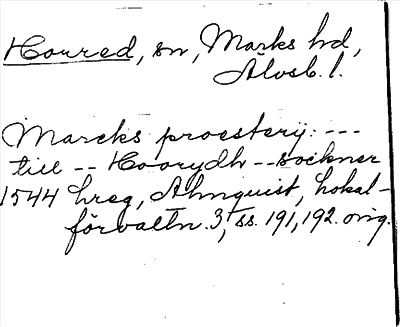 Houred, sn, Marks hd,
Älvsb. l.
Marcks proesterij: ---
till -- Hoorydh -- sockner
1544 hreg, Almquist, Lokal-
förvaltn. 3, ss. 191, 192. orig.